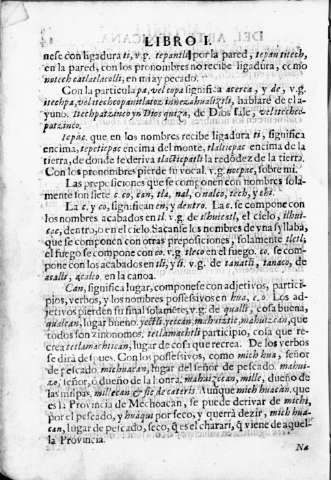 LIBRO I.
nese con ligadura ti, v.g. tepantli por la pared, tepantitech,
en la pared, con los pronombres no recibe ligadura, como
notech catlatlacolli, en mi ay pecado.
Con la particula pa, vel copa significa acerca, y de, v.g.
itechpa, vel itechcopa nitlatoz inneзahualiztli, hablarè de el a-
yuno. itechpatzinco yn Dios quiza, de Dios sale, vel itechco-
patzinco.
tepac. que en los nombres recibe ligadura ti, significa
encima, tepeticpac encima del monte, tlalticpac encima de la
tierra, de donde se deriva tlalticpatli la redõdez de la tierra.
Con los pronombres pierde su vocal. v.g. nocpac, sobre mi.
Las preposiciones que se componen con nombres sola-
mente son siete c. co, can, tla, nal, ò nalco, tech, y chi.
La c. y co, significan en, y dentro. La c. se compone con
los nombres acabados en tl. v.g. de ilhuicatl, el cielo, ilhui-
cac, dentro, o en el cielo. Sacanse los nombres de vna syllaba,
que se componen con otras preposiciones, solamente tletl,
el fuego se compone con co. v.g. tleco en el fuego. co. se com-
pone con los acabados en tli, y li. v.g. de tanatli, tanaco, de
acalli, acalco en la canoa.
Can, significa lugar, componese con adjetivos, partici-
pios, verbos, y los nombres possessivos en hua, e, o. Los ad-
jetivos pierden su final solamẽte, v.g. de qualli, cosa buena,
qualcan, lugar bueno. yectli, yeccan, mahuiztic, mahuizcan, que
todos son zinonomos. tetlamachti participio, cosa que re-
crea tetlamachtican, lugar de cosa que recrea. De los verbos
se dirà despues. Con los possessivos, como mich hua, señor
de pescado. michuacan, lugar del señor de pescado. mahui-
зe, señor, ò dueño de la honra. mahuizecan, mille, dueño de
las milpas, millecan & sic de cæteris. Aunque mich huacan, que
es la Provincia de Mechoacan, se puede derivar de michi,
por el pescado, y huàqui por seco, y querrà dezir, mich hua-
can, lugar de pescado, seco, q̃ es el charari, q̃ viene de aque-
lla Provincia.
Na